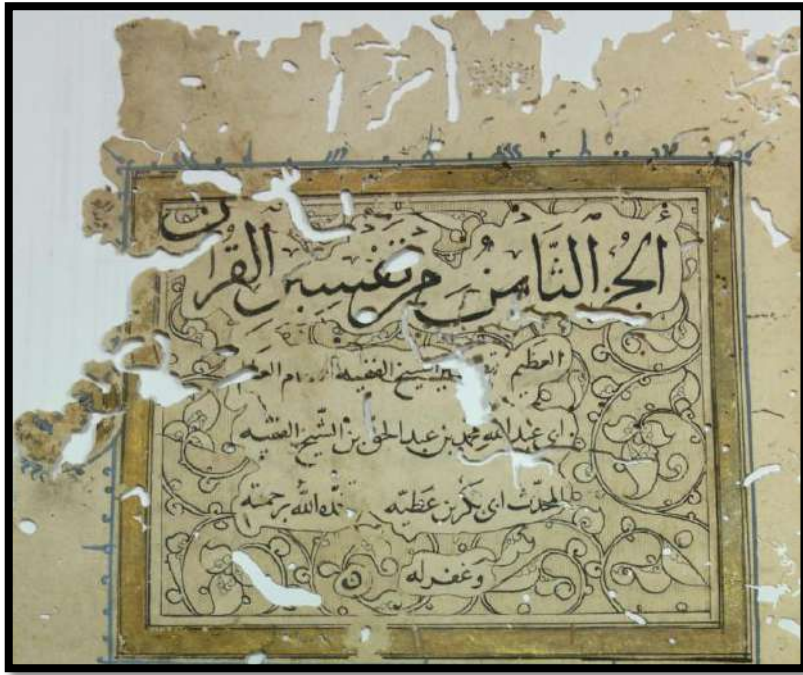 الجزء الثَّامِنُ مِنْ تَفْسِيرِ القُرآن
العظيم الشيخ الفقيه العظم
ابى عبد الله محمد بن عبد الحق بن الشّيخ الفقيه
المحدّث ابى بكر بن عطيّه الله برحمته
وغفر له